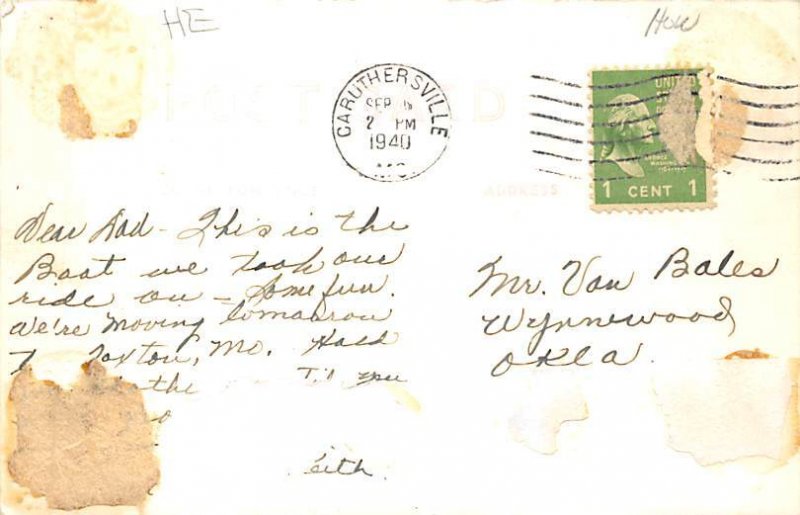 HE
How
POST CARD
CARUTHERSVILLE
SEP
2 PM
1940
MO.
UNITED
GEORGE
WASHINGTON
1 CENT 1
ADDRESS
Dear Dad - This is the
Boat we took our
ride on - Some fun.
We're moving tomorrow
Mo. Hold
the
you
Mr. Van Bales
Wynnewood
Okla.